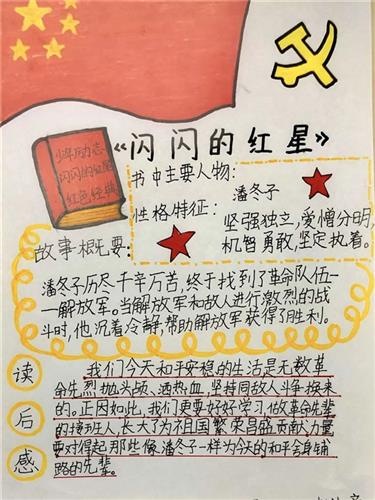 《闪闪的红星》
少年励志
闪闪的红星
红色经典
书中主要人物:
潘冬子
性格特征:
坚强独立,爱憎分明,
机智勇敢,坚定执着。
故事概要:
潘冬子历尽千辛万苦,终于找到了革命队伍—
—解放军。当解放军和敌人进行激烈的战
斗时,他沉着冷静,帮助解放军获得了胜利。
读后感
我们今天和平安稳的生活是无数革
命先烈抛头颅、洒热血,坚持同敌人斗争换来
的。正因如此,我们更要好好学习,做革命先辈
的接班人,长大了为祖国繁荣昌盛贡献力量,
要对得起那些像潘冬子一样为今天的和平舍身铺
路的先辈。